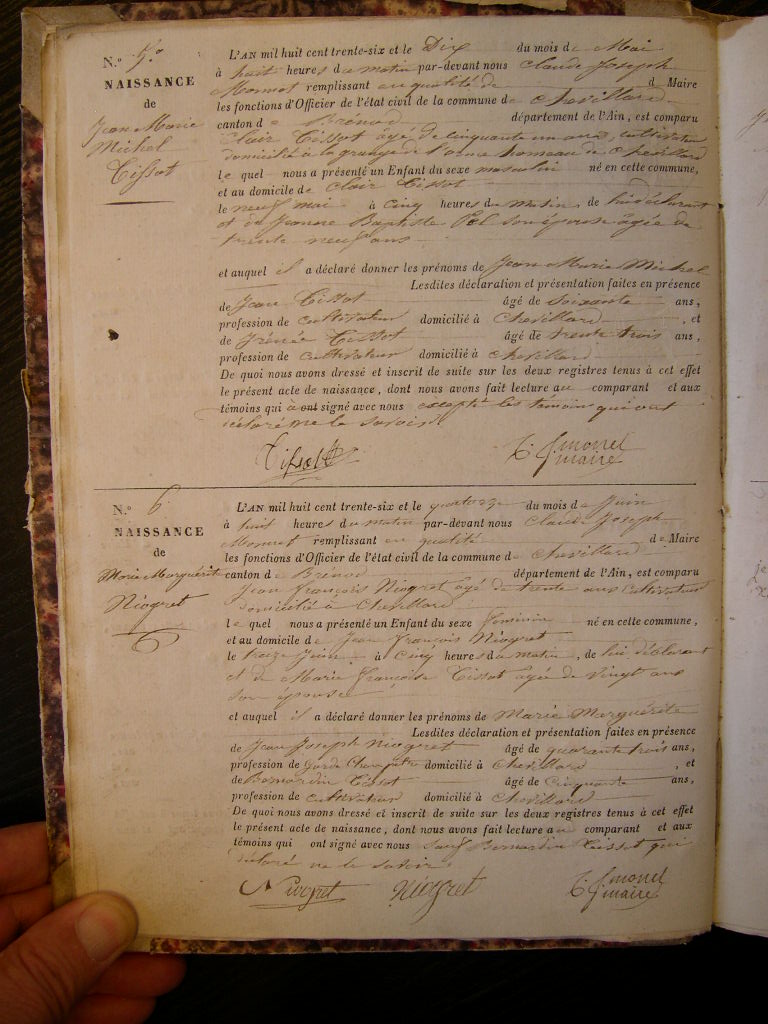 N.° 5.°
NAISSANCE
de
Jean Marie
Michel
Tissot
L'AN mil huit cent trente-six et le Dix du mois de Mai
à huit heures du matin par-devant nous Claude Joseph
Monnet remplissant en qualité de d Maire
les fonctions d'Officier de l'état civil de la commune de Chevillard
canton de Brénod département de l'Ain, est comparu
Clair Tissot agé de cinquante un ans, cultivateur
domicilié à la grange de hameau de Chevillard
le quel nous a présenté un Enfant du sexe masculin né en cette commune,
et au domicile de Clair Tissot
le neuf mai à cinq heures du matin, de lui déclarant
et de Jeanne Baptiste son épouse agée de
trente neuf ans
et auquel il a déclaré donner les prénoms de Jean Marie Michel
Lesdites déclaration et présentation faites en présence
de Jean Tissot âgé de soixante ans,
profession de cultivateur domicilié à Chevillard, et
de Irénée Tissot âgé de trente trois ans,
profession de cultivateur domicilié à Chevillard
De quoi nous avons dressé et inscrit de suite sur les deux registres tenus à cet effet
le présent acte de naissance, dont nous avons fait lecture au comparant et aux
témoins qui ont signé avec nous excepté les témoins qui ont
déclaré ne le savoir.
Tissot C. J. monnet
maire
N.° 6.
NAISSANCE
de
Marie Marguérite
Niogret
L'AN mil huit cent trente-six et le quatorze du mois de Juin
à huit heures du matin par-devant nous Claude Joseph
Monnet remplissant en qualité de Maire
les fonctions d'Officier de l'état civil de la commune de Chevillard
canton de Brénod département de l'Ain, est comparu
Jean François Niogret agé de trente ans cultivateur
domicilié à Chevillard
le quel nous a présenté un Enfant du sexe féminin né en cette commune,
et au domicile de Jean François Niogret
le treize Juin à cinq heures du matin, de lui déclarant
et de Marie Françoise Tissot agée de vingt ans
son épouse
et auquel il a déclaré donner les prénoms de Marie Marguérite
Lesdites déclaration et présentation faites en présence
de Jean Joseph Niogret âgé de quarante trois ans,
profession de garde Champêtre domicilié à Chevillard, et
de Bernardin Tissot âgé de Cinquante ans,
profession de cultivateur domicilié à Chevillard
De quoi nous avons dressé et inscrit de suite sur les deux registres tenus à cet effet
le présent acte de naissance, dont nous avons fait lecture au comparant et aux
témoins qui ont signé avec nous sauf Bernardin Tissot qui
déclaré ne le savoir.
Niogret Niogret C. J. monnet
maire